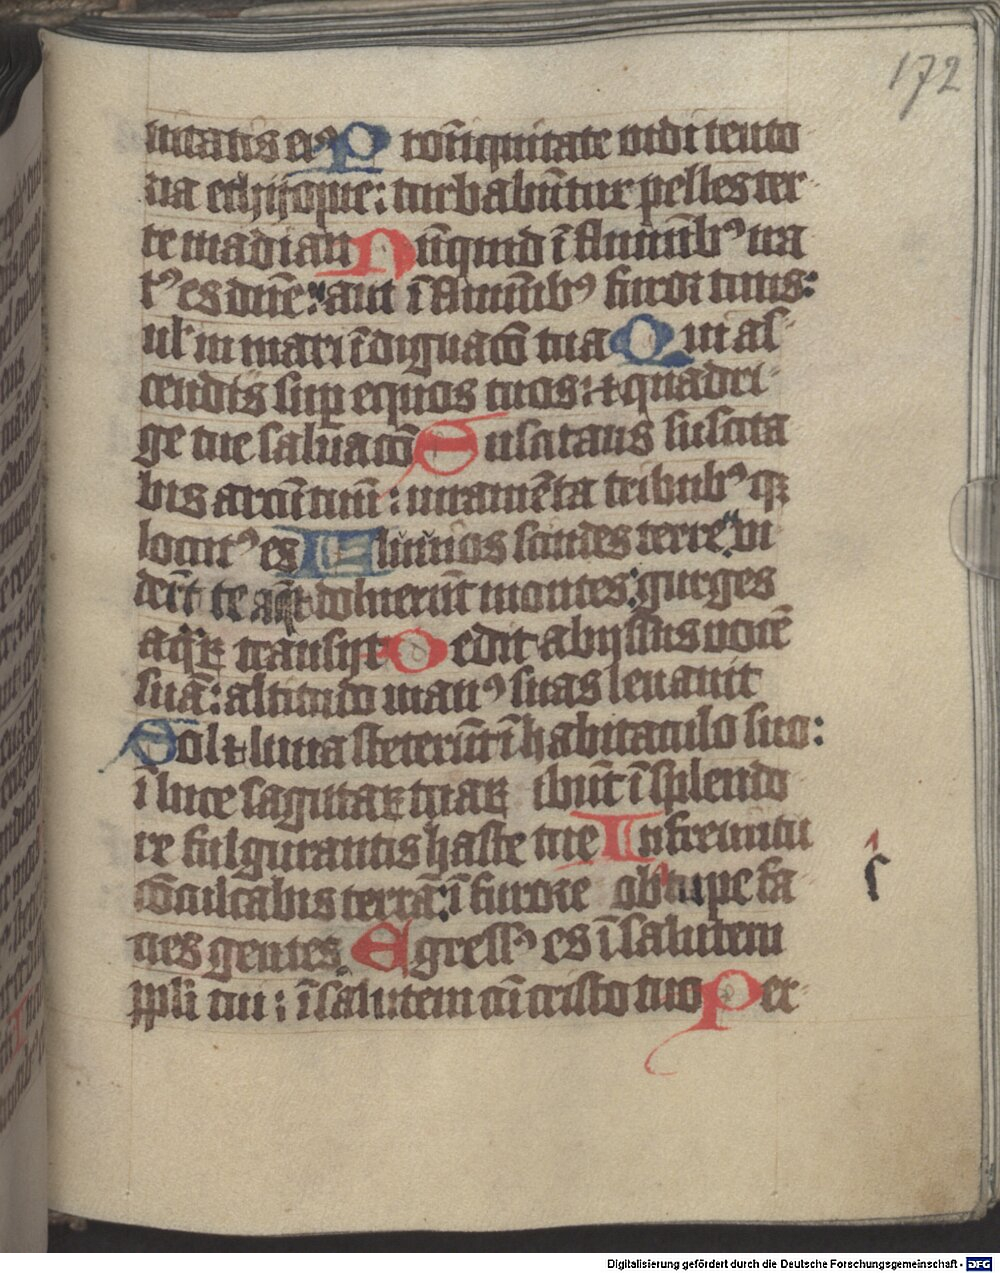 172
nitatis ei⁹ P ro iniquitate vidi tento
ria ethyopie: turbabūtur pelles ter
re madian Nūquid ī flumīnib⁹ ira
t⁹ es dn̄e: aut ī flumīnib⁹ furor tuus:
ul' in mari īdignacō tua Qui as
cendis sup̱ equos tuos: ⁊ quadri
ge tue saluacō Suscitans suscita
bis arcū tuū: iuramēta tribub⁹ qꝫ
locut⁹ es Fluuios scindes terre vi
derūt te aque ⁊ doluerūt montes: gurges
aqꝝ transijt Dedit abyssus vocē
suā: altitudo man⁹ suas leuauit
Sol ⁊ luna steterūt ī habitaculo suo:
ī luce sagittaꝝ tuaꝝ ibūt ī splendo
re fulgurantis haste tue In fremitu
cōculcabis terrā: ī furore obstupefa
cies gentes Egress⁹ es ī salutem
ppl̄i tui: ī salutem cū cristo tuo Per
s
Digitalisierung gefördert durch die Deutsche Forschungsgemeinschaft - DFG